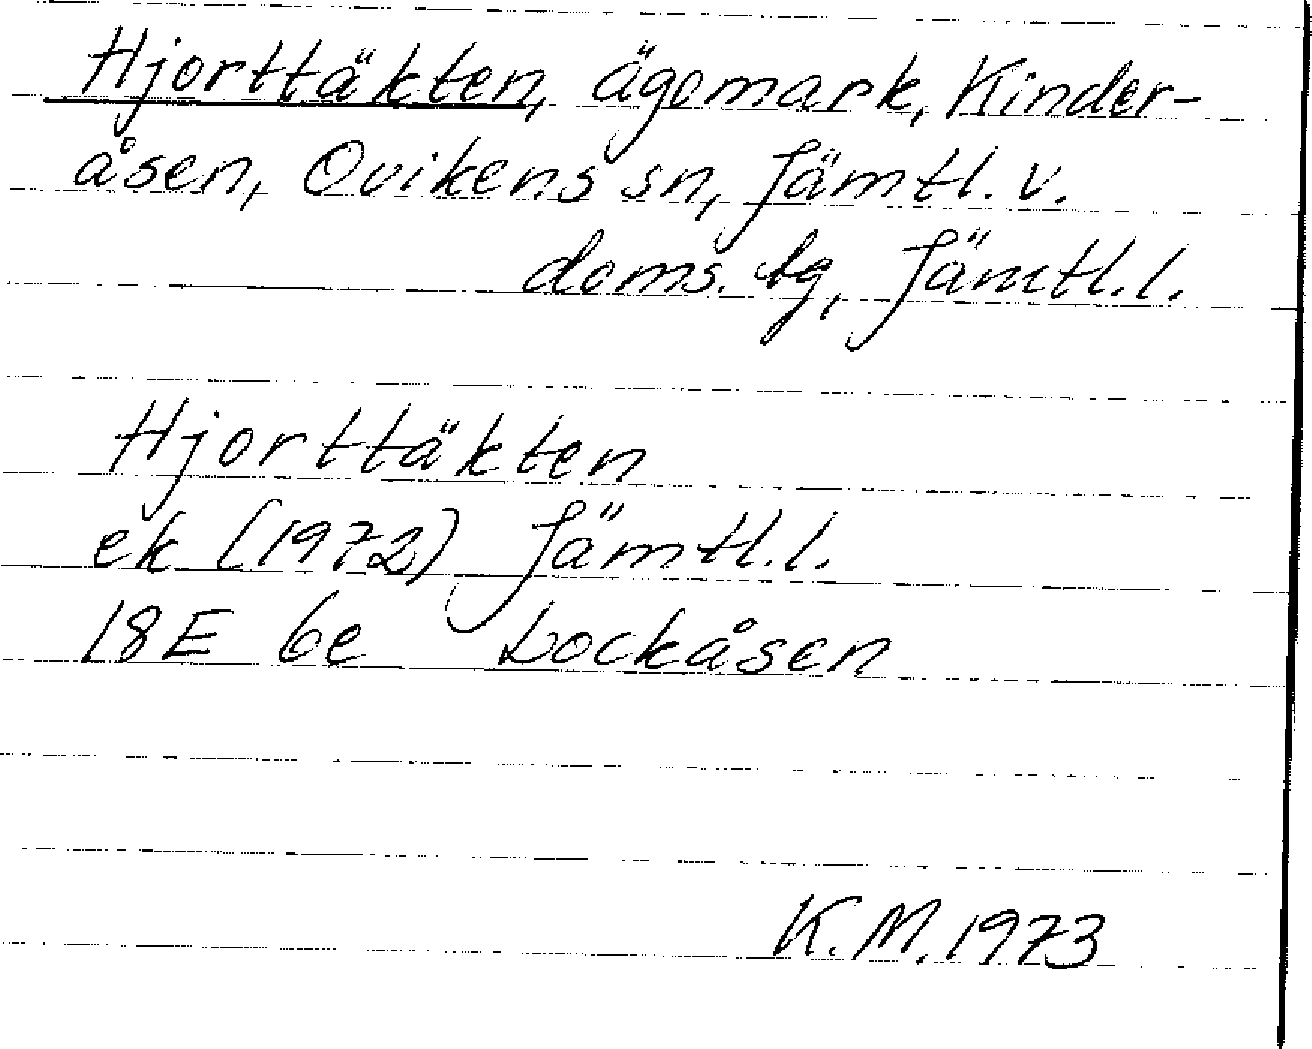 Hjorttäkten, ägomark, Kinder-
åsen, Ovikens sn, Jämtl. v.
doms. tg, Jämtl. l.
Hjorttäkten
ek (1972) Jämtl. l.
18E 6e Dockåsen
K.M. 1973